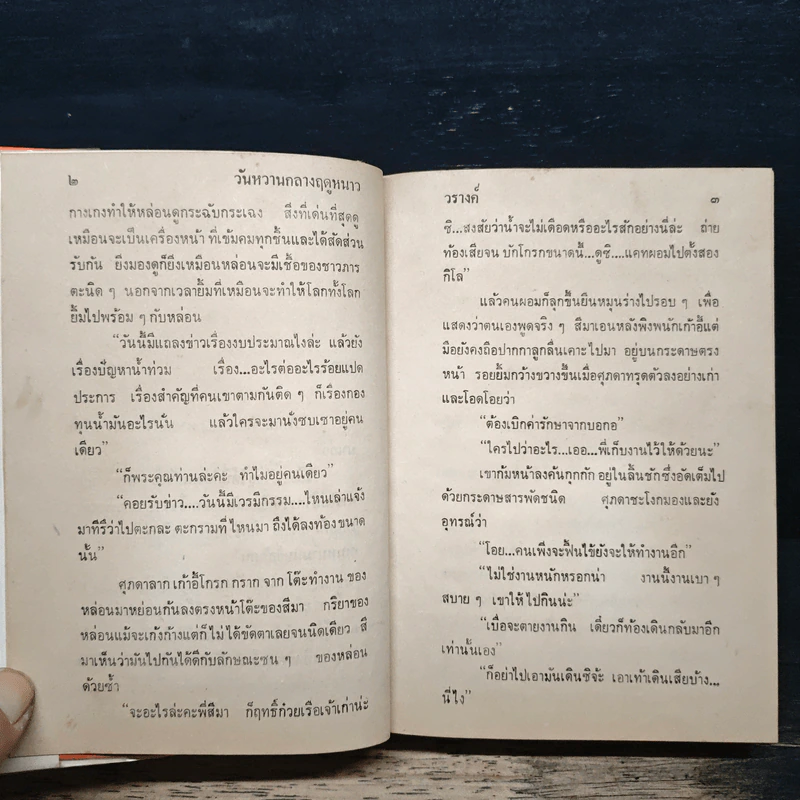 ๒
วันหวานกลางฤดูหนาว
กางเกงทำให้หล่อนดูกระฉับกระเฉง สิ่งที่เด่นที่สุดดู
เหมือนจะเป็นเครื่องหน้า ที่เข้มคมทุกชิ้นและได้สัดส่วน
รับกัน ยิ่งมองดูก็ยิ่งเหมือนหล่อนจะมีเชื้อของชาวภาร
ตะนิด ๆ นอกจากเวลายิ้มที่เหมือนจะทำให้โลกทั้งโลก
ยิ้มไปพร้อม ๆ กับหล่อน
“วันนี้มีแถลงข่าวเรื่องงบประมาณไงล่ะ แล้วยัง
เรื่องปัญหาน้ำท่วม เรื่อง...อะไรต่ออะไรร้อยแปด
ประการ เรื่องสำคัญที่คนเขาตามกันติด ๆ ก็เรื่องกอง
ทุนน้ำมันอะไรนั่น แล้วใครจะมานั่งซบเซาอยู่คน
เดียว”
“ก็พระคุณท่านล่ะคะ ทำไมอยู่คนเดียว”
“คอยรับข่าว....วันนี้มีเวรมีกรรม....ไหนเล่าแจ้ง
มาทีรึว่าไปตะกละ ตะกรามที่ไหนมา ถึงได้ลงท้องขนาด
นั้น”
ศุภดาลาก เก้าอี้โกรก กราก จาก โต๊ะทำงาน ของ
หล่อนมาหย่อนก้นลงตรงหน้าโต๊ะของสีมา กริยาของ
หล่อนแม้จะเก้งก้างแต่ก็ไม่ได้ขัดตาเลยจนนิดเดียว สี
มาเห็นว่ามันไปกันได้ดีกับลักษณะซน ๆ ของหล่อน
ด้วยซ้ำ
“จะอะไรล่ะคะพี่สีมา ก็ฤทธิ์ก๋วยเรือเจ้าเก่าน่ะ
วรางค์
๓
ซิ...สงสัยว่าน้ำจะไม่เดือดหรืออะไรสักอย่างนี่ล่ะ ถ่าย
ท้องเสียจน บักโกรกขนาดนี้...ดูซิ....แคทผอมไปตั้งสอง
กิโล”
แล้วคนผอมก็ลุกขึ้นยืนหมุนร่างไปรอบ ๆ เพื่อ
แสดงว่าตนเองพูดจริง ๆ สีมาเอนหลังพิงพนักเก้าอี้แต่
มือยังคงถือปากกาลูกลื่นเคาะไปมา อยู่บนกระดาษตรง
หน้า รอยยิ้มกว้างขวางขึ้นเมื่อศุภดาทรุดตัวลงอย่างเก่า
และโอดโอยว่า
“ต้องเบิกค่ารักษาจากบอกอ”
“ใครไปว่าอะไร...เออ...พี่เก็บงานไว้ให้ด้วยนะ”
เขาก้มหน้าลงค้นกุกกัก อยู่ในลิ้นชักซึ่งอัดเต็มไป
ด้วยกระดาษสารพัดชนิด ศุภดาชะโงกมองและยัง
อุทรณ์ว่า
“โอย...คนเพิ่งจะฟื้นไข้ยังจะให้ทำงานอีก”
“ไม่ใช่งานหนักหรอกน่า งานนี้งานเบา ๆ
สบาย ๆ เขาให้ไปกินน่ะ”
“เบื่อจะตายงานกิน เดี๋ยวก็ท้องเดินกลับมาอีก
เท่านั้นเอง”
“ก็อย่าไปเอามันเดินซิจ๊ะ เอาเท้าเดินเสียบ้าง...
นี่ไง”